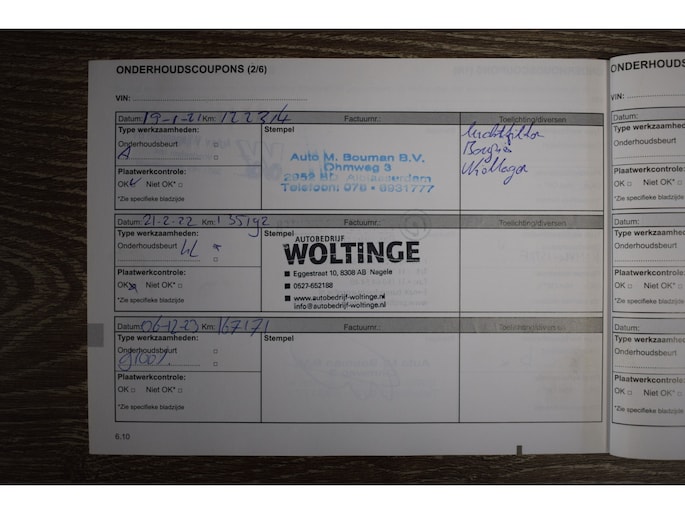 ONDERHOUDSCOUPONS (2/6)
VIN:
Datum: 19-1-21 Km: 122314 Factuurnr.: Toelichting/diversen
Type werkzaamheden:
Onderhoudsbeurt
A
Plaatwerkcontrole:
OK Niet OK*
*Zie specifieke bladzijde
Stempel
Auto M. Bouman B.V.
Ohmweg 3
2952 BD Alblasserdam
Telefoon: 078 - 6931777
Luchtfilter
Bougies
Datum: 21-2-22 Km: 135192 Factuurnr.: Toelichting/diversen
Type werkzaamheden:
Onderhoudsbeurt
Plaatwerkcontrole:
OK Niet OK*
*Zie specifieke bladzijde
Stempel
AUTOBEDRIJF
WOLTINGE
Eggestraat 10, 8308 AB Nagele
0527-652188
www.autobedrijf-woltinge.nl
info@autobedrijf-woltinge.nl
Datum: 06-12-23 Km: 167171 Factuurnr.: Toelichting/diversen
Type werkzaamheden:
Onderhoudsbeurt
groot
Plaatwerkcontrole:
OK Niet OK*
*Zie specifieke bladzijde
Stempel
6.10
ONDERHOUDS
VIN:
Datum:
Type werkzaamh
Onderhoudsbeurt
Plaatwerkcontrol
OK Niet OK*
*Zie specifieke bladz
Datum:
Type werkzaamh
Onderhoudsbeurt
Plaatwerkcontrol
OK Niet OK*
*Zie specifieke bladz
Datum:
Type werkzaamh
Onderhoudsbeurt
Plaatwerkcontrol
OK Niet OK*
*Zie specifieke bladz